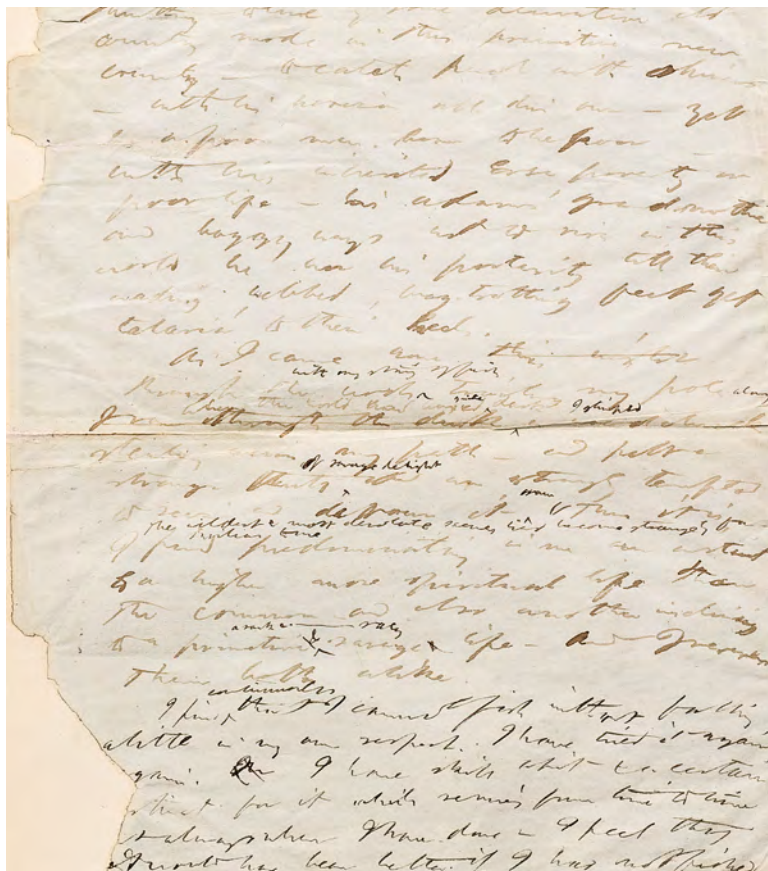 derivative old
country mode in this primitive new
country — to catch perch with shiners
— with his horizon all his own — yet
he a poor man. born to be poor
with his inherited Erse poverty or
poor life — his Adam's grandmother
and boggy ways not to rise in this
world he nor his posterity till their
wading, webbed, bog-trotting feet get
talaria to their heels.
As I came home this
with my string of fish
through the woods trailing my pole along
I glimpsed
through the dark a woodchuck
stealing across my path — and felt a
of savage delight
strange thrill and was strongly tempted
to seize and devour it
The wildest & most desolate scenes had become strangely
I find predominating in me an instinct
to a higher more spiritual life than
the common and also another inclining
to a primitive savage life — and I reverence
them both alike.
continually
I find that I cannot fish without falling
a little in my own respect. I have tried it again
again. I have skill at it & a certain
instinct for it which revives from time to time
& always when I have done — I feel that
it would have been better if I had not fished